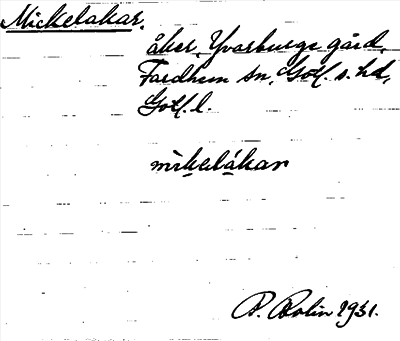 Mickelakar.
åker, Yvarburge gård,
Fardhem sn, Gotl. s. hd,
Gotl. l.
mìkelákar
P. Bolin 1931.